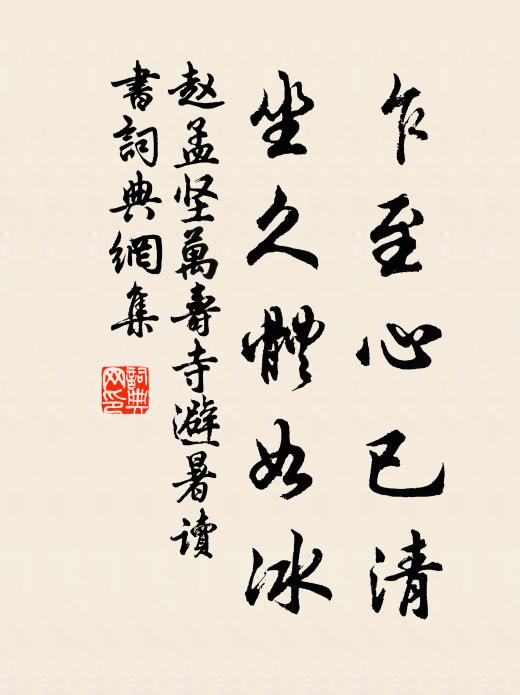 乍至心已清
坐久體如冰
赵孟坚萬壽寺避暑读
書詞典網集
詞典網印